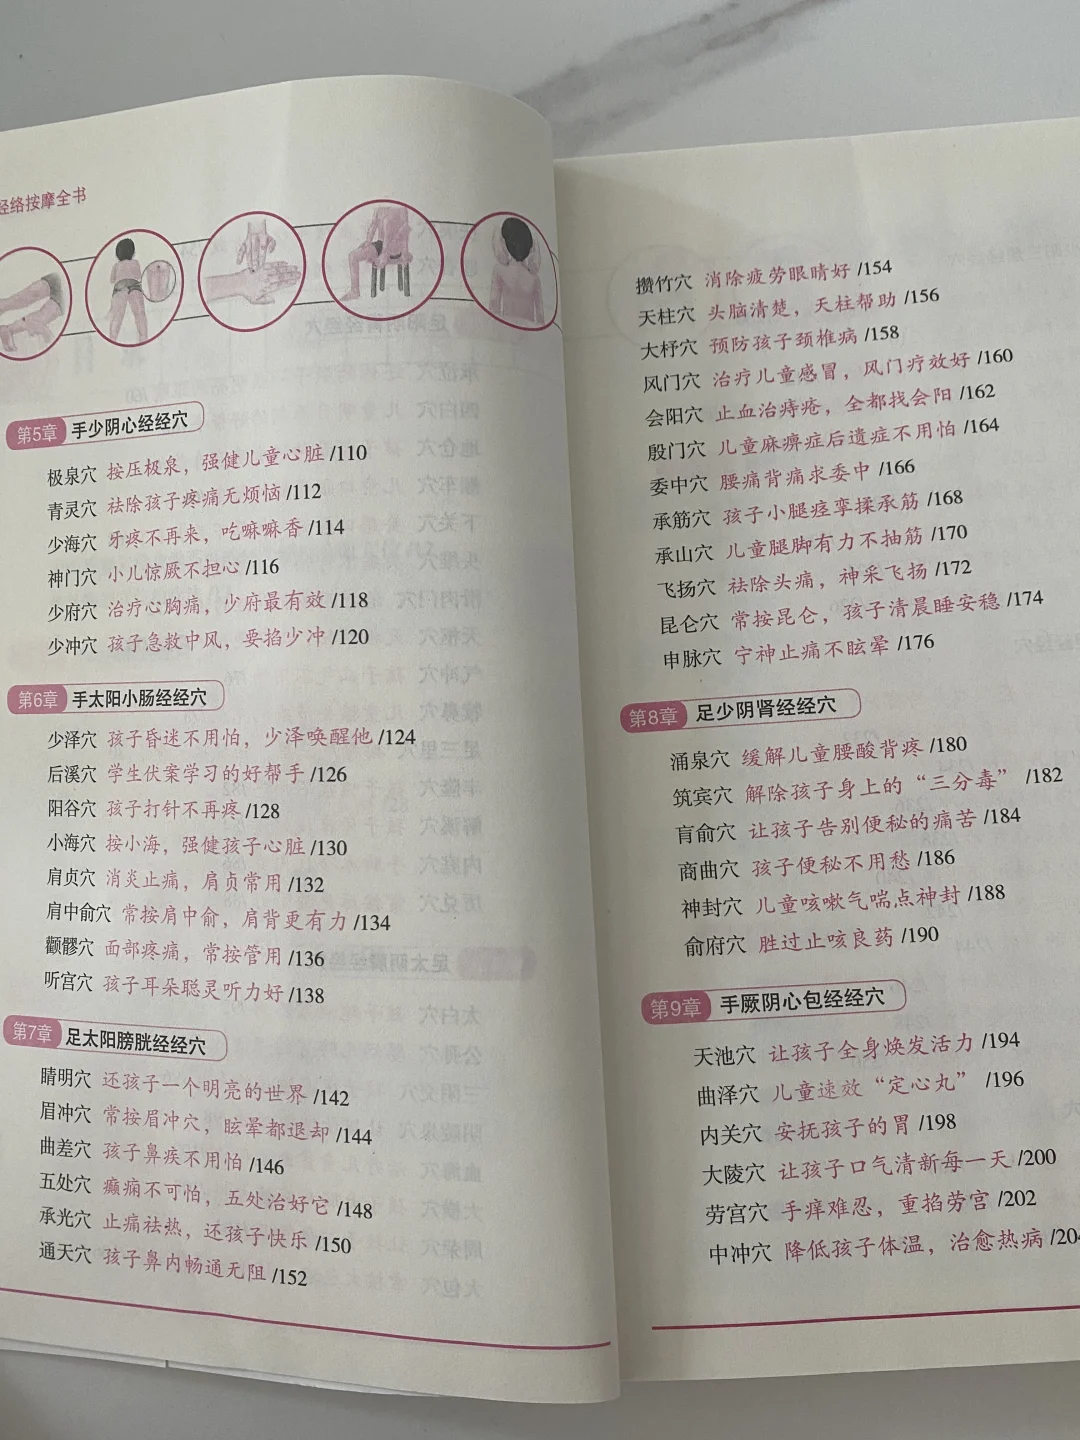 经络按摩全书
第5章 手少阴心经经穴
极泉穴 按压极泉，强健儿童心脏 /110
青灵穴 祛除孩子疼痛无烦恼 /112
少海穴 牙疼不再来，吃嘛嘛香 /114
神门穴 小儿惊厥不担心 /116
少府穴 治疗心胸痛，少府最有效 /118
少冲穴 孩子急救中风，要掐少冲 /120
第6章 手太阳小肠经经穴
少泽穴 孩子昏迷不用怕，少泽唤醒他 /124
后溪穴 学生伏案学习的好帮手 /126
阳谷穴 孩子打针不再疼 /128
小海穴 按小海，强健孩子心脏 /130
肩贞穴 消炎止痛，肩贞常用 /132
肩中俞穴 常按肩中俞，肩背更有力 /134
颧髎穴 面部疼痛，常按管用 /136
听宫穴 孩子耳朵聪灵听力好 /138
第7章 足太阳膀胱经经穴
睛明穴 还孩子一个明亮的世界 /142
眉冲穴 常按眉冲穴，眩晕都退却 /144
曲差穴 孩子鼻疾不用怕 /146
五处穴 癫痫不可怕，五处治好它 /148
承光穴 止痛祛热，还孩子快乐 /150
通天穴 孩子鼻内畅通无阻 /152
攒竹穴 消除疲劳眼睛好 /154
天柱穴 头脑清楚，天柱帮助 /156
大杼穴 预防孩子颈椎病 /158
风门穴 治疗儿童感冒，风门疗效好 /160
会阳穴 止血治痔疮，全都找会阳 /162
殷门穴 儿童麻痹症后遗症不用怕 /164
委中穴 腰痛背痛求委中 /166
承筋穴 孩子小腿痉挛揉承筋 /168
承山穴 儿童腿脚有力不抽筋 /170
飞扬穴 祛除头痛，神采飞扬 /172
昆仑穴 常按昆仑，孩子清晨睡安稳 /174
申脉穴 宁神止痛不眩晕 /176
第8章 足少阴肾经经穴
涌泉穴 缓解儿童腰酸背疼 /180
筑宾穴 解除孩子身上的“三分毒” /182
肓俞穴 让孩子告别便秘的痛苦 /184
商曲穴 孩子便秘不用愁 /186
神封穴 儿童咳嗽气喘点神封 /188
俞府穴 胜过止咳良药 /190
第9章 手厥阴心包经经穴
天池穴 让孩子全身焕发活力 /194
曲泽穴 儿童速效“定心丸” /196
内关穴 安抚孩子的胃 /198
大陵穴 让孩子口气清新每一天 /200
劳宫穴 手痒难忍，重掐劳宫 /202
中冲穴 降低孩子体温，治愈热病 /204